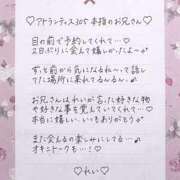 ♡アトランティス305 本指のお兄さん♡
目の前で予約してくれて…♡
2日ぶりに会えて嬉しかったよー♪
ずっと前から気になるれいって話して
場所に来れてるんるん♪
お兄さんはれいが言った好きな物
や好きな事を覚えていてくれて♡
本当に嬉しい。いつもありがとう♪
また会えるの楽しみにしてる…♪
オキニトークも…!♡
♡れい♡